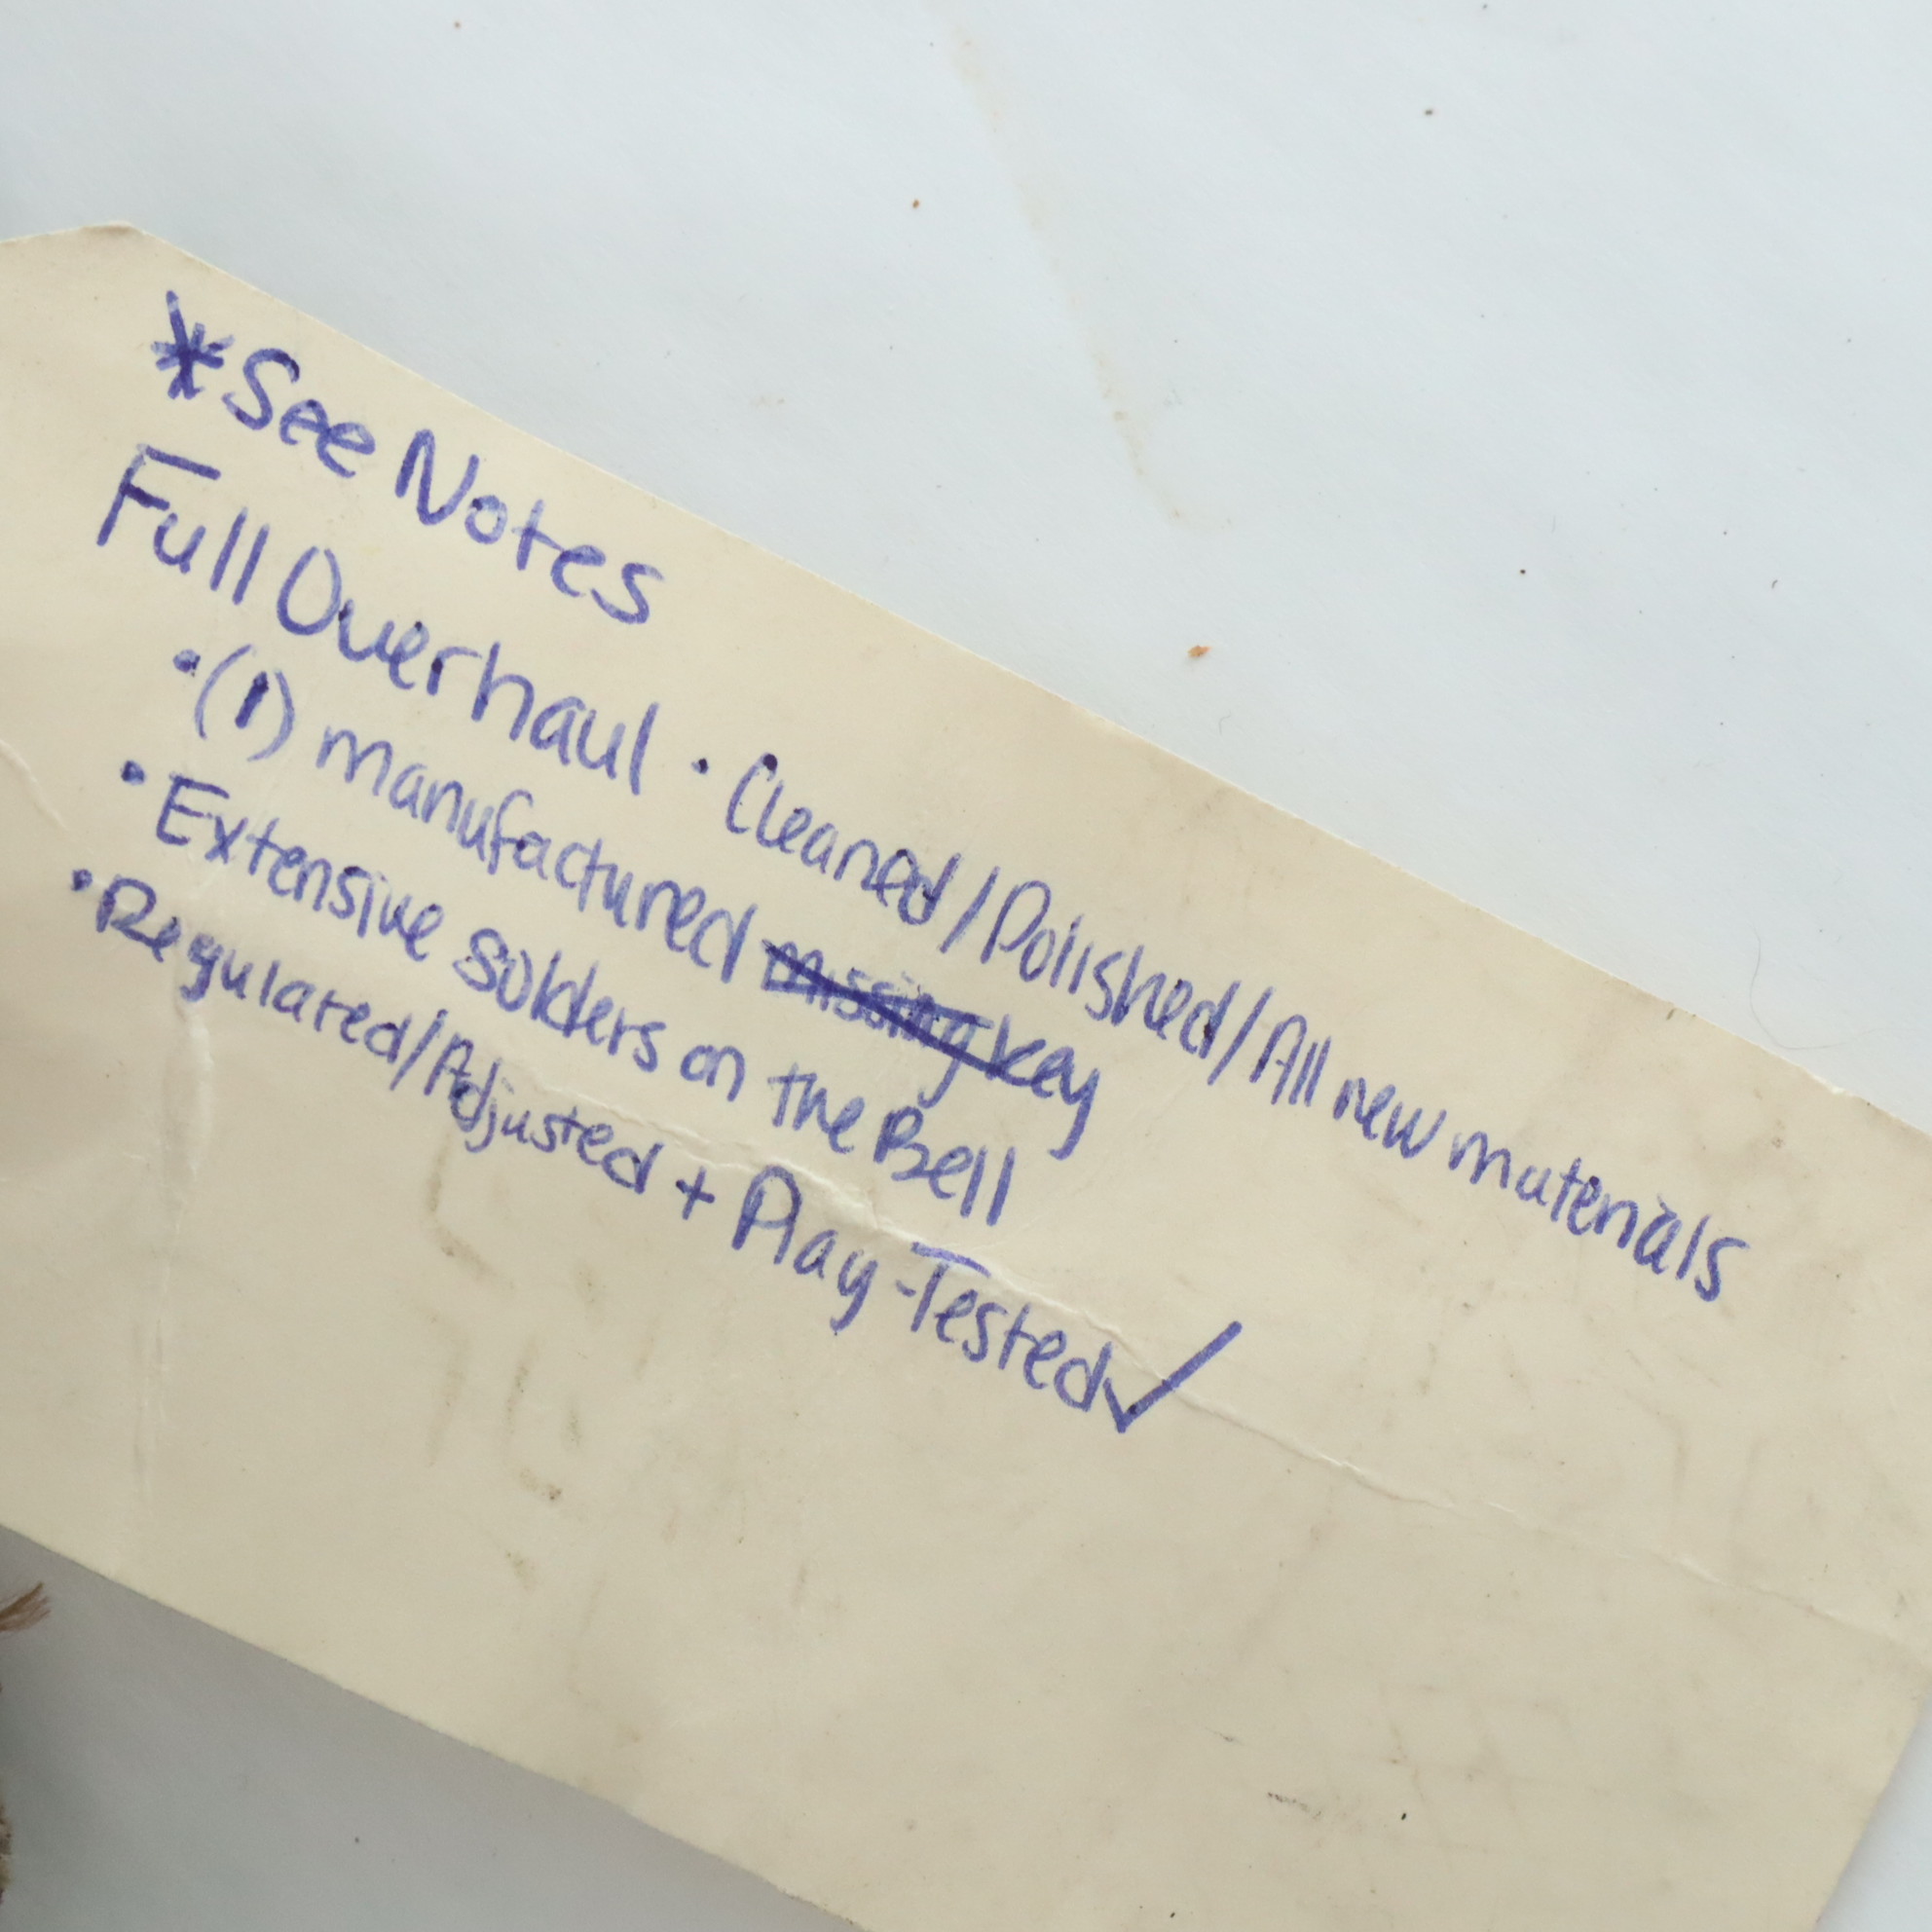 *See Notes
Full Overhaul • Cleaned/Polished/All new materials
• (1) manufactured missing key
• Extensive solders on the Bell
• Regulated/Adjusted + Play-Tested✓